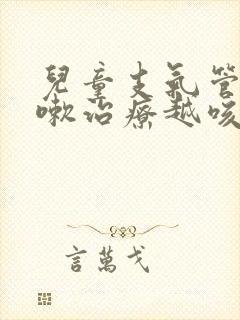 兒童支氣管
嗽治療越咳
言萬戈